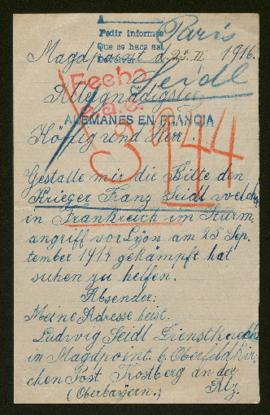 Pedir informes
Que se haga así
Paris
Magdpoint d. 23. II. 1916.
Seidl
Fecho
Allergnädigster
ALEMANES EN FRANCIA
König und Herr!
3144
Gestatte mir die Bitte den
Krieger Franz Seidl welcher
in Frankreich im Sturm
angriff vor Lyon am 23 Sep
tember 1914 gekämpft hat
suhen zu helfen.
Absender:
Meine Adresse heist.
Ludwig Seidl Dienstknecht
in Magdpoint b. Oberfeldkir
chen Post Trostberg an der
(Oberbayern.) Alz.